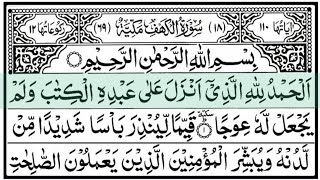 اٰيَاتُهَا ١١٠ (١٨) سُوْرَةُ الْكَهْفِ مَكِّيَّةٌ (٦٩) رُكُوْعَاتُهَا ١٢
بِسْمِ اللّٰهِ الرَّحْمٰنِ الرَّحِيْمِ
اَلْحَمْدُ لِلّٰهِ الَّذِيْۤ اَنْزَلَ عَلٰى عَبْدِهِ الْكِتٰبَ وَلَمْ
يَجْعَلْ لَّهٗ عِوَجًا ۜ ١ قَيِّمًا لِّيُنْذِرَ بَاْسًا شَدِيْدًا مِّنْ
لَّدُنْهُ وَيُبَشِّرَ الْمُؤْمِنِيْنَ الَّذِيْنَ يَعْمَلُوْنَ الصّٰلِحٰتِ